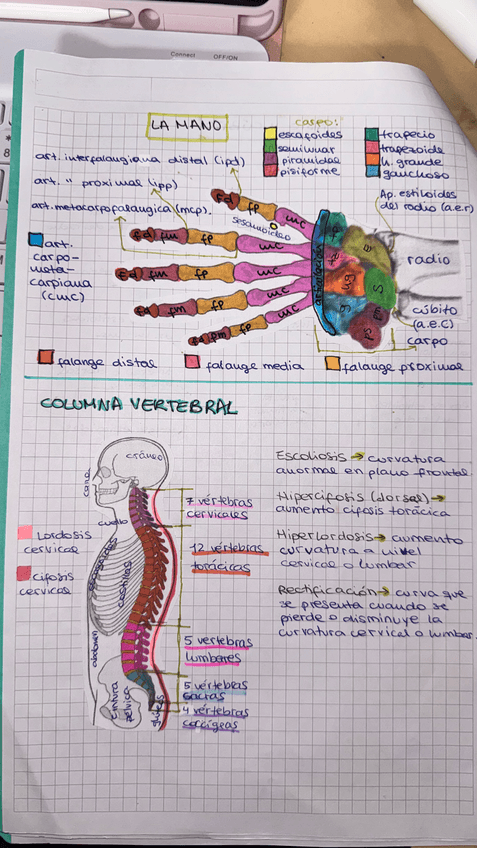 Connect
OFF/ON
8
LA MANO
carpo:
escafoides
semilunar
piramidal
pisiforme
trapecio
trapezoide
h. grande
ganchoso
art. interfalangiana distal (ipd)
art. " proximal (ipp)
art. metacarpofalangica (mcp).
art.
carpo-
meta-
carpiana
(cmc)
Ap. estiloides
del radio (a.e.r)
sesamoideo
fd fp mc
fd fm fp mc
fd fm fp mc
fm fp mc
fd fm fp mc
articulacion
radio
cúbito
(a.e.c)
carpo
falange distal
falange media
falange proximal
COLUMNA VERTEBRAL
cráneo
cara
cuello
costillas
abdomen
cintura
pélvica
Lordosis
cervical
Cifosis
cervical
7 vértebras
cervicales
12 vértebras
torácicas
5 vertebras
lumbares
5 vértebras
sacras
4 vértebras
coccígeas
Escoliosis → curvatura
anormal en plano frontal
Hipercifosis (dorsal) →
aumento cifosis torácica
Hiperlordosis → aumento
curvatura a nivel
cervical o lumbar
Rectificación → curva que
se presenta cuando se
pierde o disminuye la
curvatura cervical o lumbar.